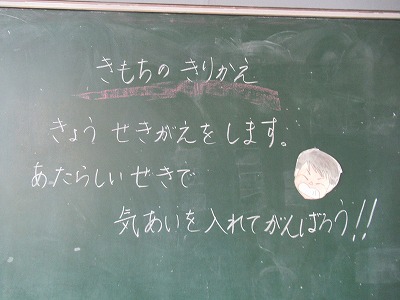 きもちの きりかえ
きょう せきがえをします。
あたらしいせきで
気あいを入れてがんばろう!!